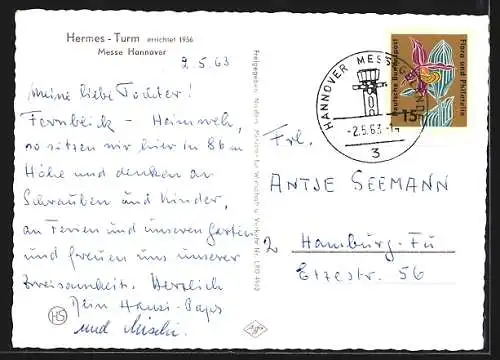 Hermes - Turm errichtet 1956
Messe Hannover
2.5.63
Meine liebe Tochter!
Fernblick - Heimweh,
so sitzen wir hier in 86 m
Höhe und denken an
Schrauben und Kinder,
an Ferien und unseren Garten
und freuen uns unserer
Zweisamkeit. Herzlich
Dein Hansi-Paps
und Mischi.
HS
Freigegeben Nieders. Minister für Wirtschaft u. Verkehr Nr.
Agfa
HANNOVER MESSE
-2.5.63-
3
Deutsche Bundespost
15
Flora und Philatelie
Frl.
ANTJE SEEMANN
2 Hamburg-Fu
Etzestr. 56